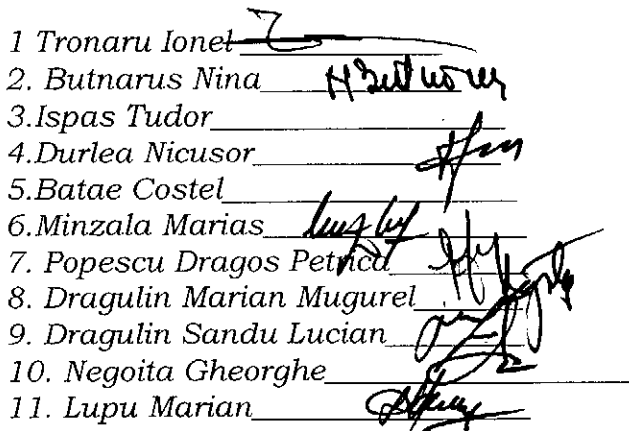 1 Tronaru Ionel
2. Butnarus Nina
3.Ispas Tudor
4.Durlea Nicusor
5.Batae Costel
6.Minzala Marias
7. Popescu Dragos Petrica
8. Dragulin Marian Mugurel
9. Dragulin Sandu Lucian
10. Negoita Gheorghe
11. Lupu Marian